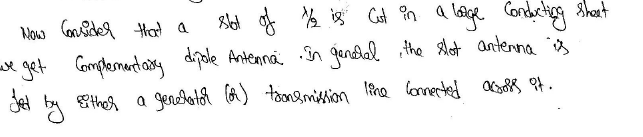 Now Consider that a slot of λ/2 is Cut in a large Conducting sheet
we get Complementary dipole Antenna. In general, the slot antenna is
fed by either a generator (or) transmission line Connected across it.